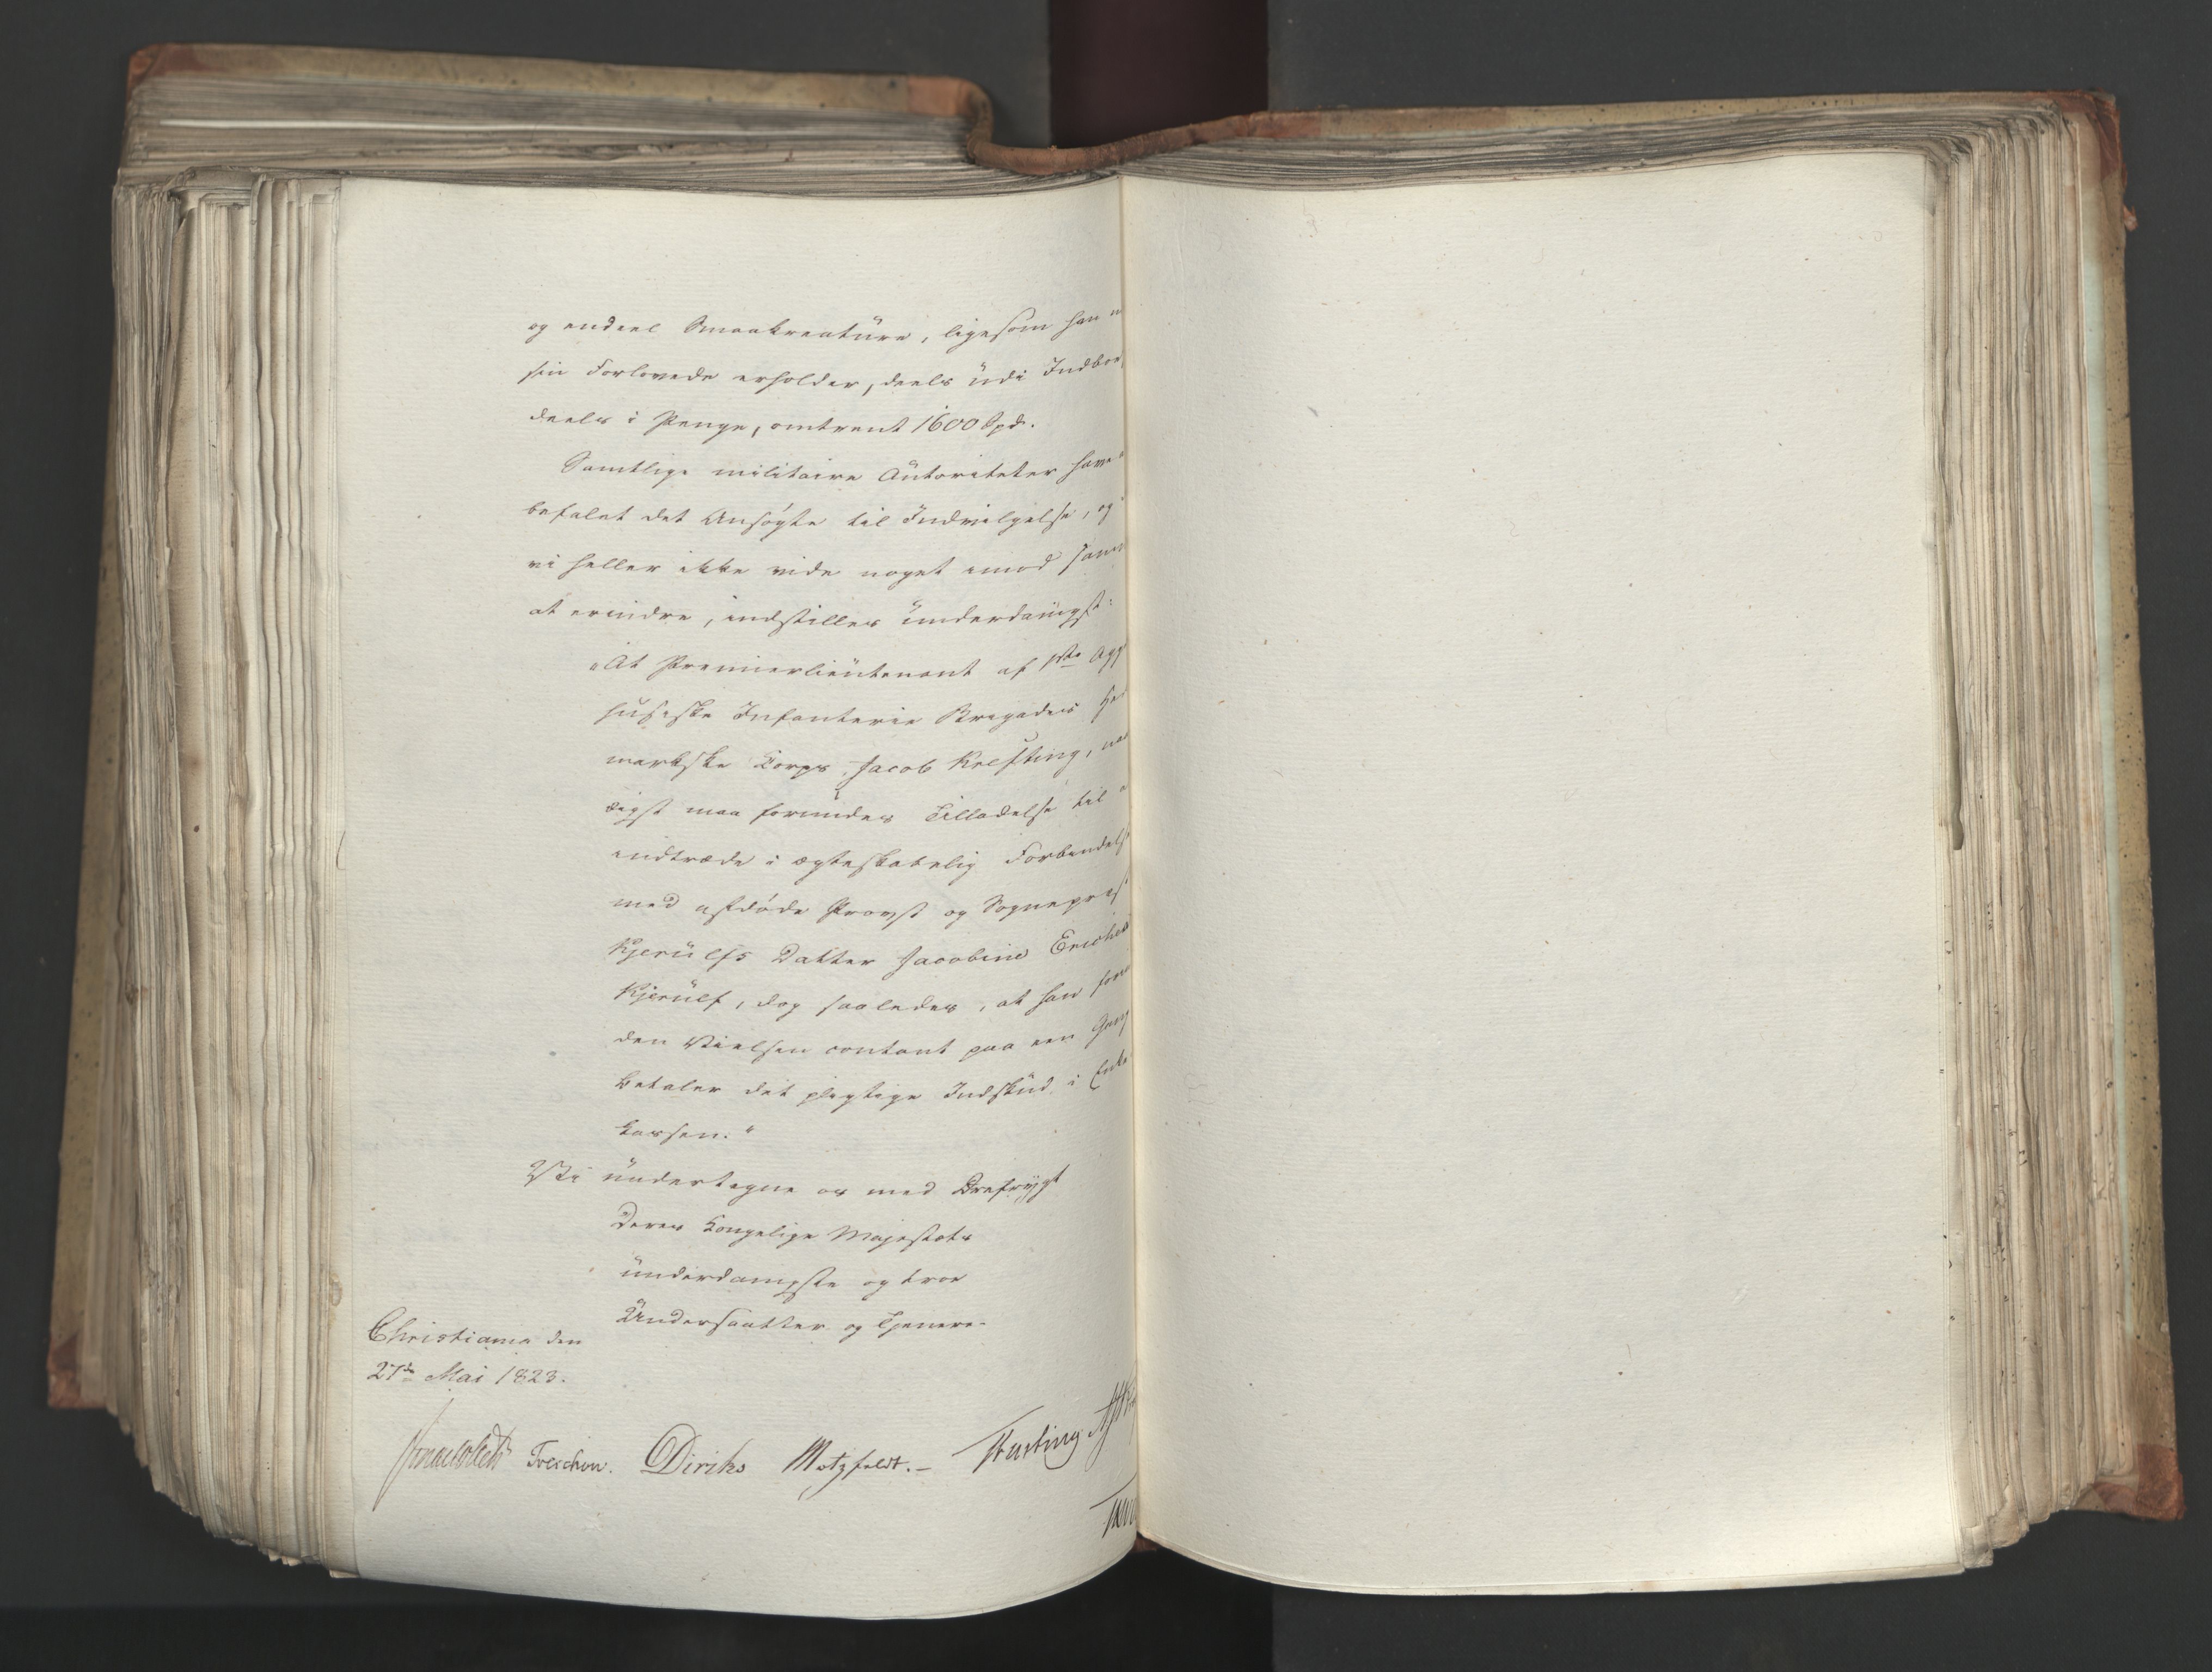 og endeel Smaakreature, ligesom han
sin Forlovede erholder, deels udi Indboe,
deels i Penge, omtrent 1600 Spd.
Samtlige militaire Autoriteter have
befalet det Ansøgte til Indvilgelse, og
vi heller ikke vide noget imod samme
at erindre, indstilles underdanigst:
„At Premierlieutenant af 1ste Agg
husiske Infanterie Brigades Hede
markske Corps, Jacob Krefting, naa
digst maa forundes Tilladelse til
indtræde i ægteskabelig Forbindelse
med afdøde Provst og Sognepræst
Kjerulfs Datter Jacobine Erichs
Kjerulf, dog saaledes, at han foren
den Vielsen contant paa een Gang
betaler det pligtige Indskud i Enke
kassen."
Vi undertegne os med Ærefrygt
Deres Kongelige Majestæts
underdanigste og troe
Undersaatter og Tjenere.
Christiania den
27de Mai 1823.
Treschow. Diriks Motzfeldt.